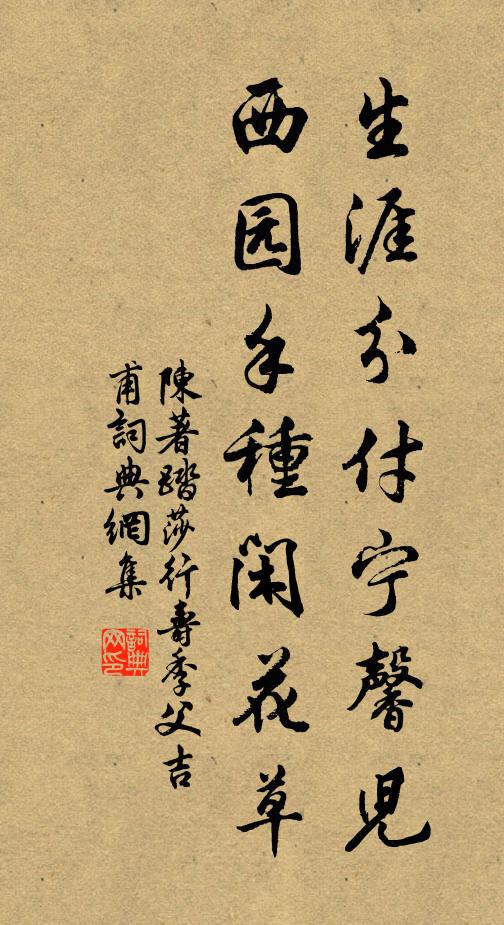 生涯分付宁馨児
西园手種閑花草
陳著踏莎行壽季父吉
甫詞典網集
詞典网印